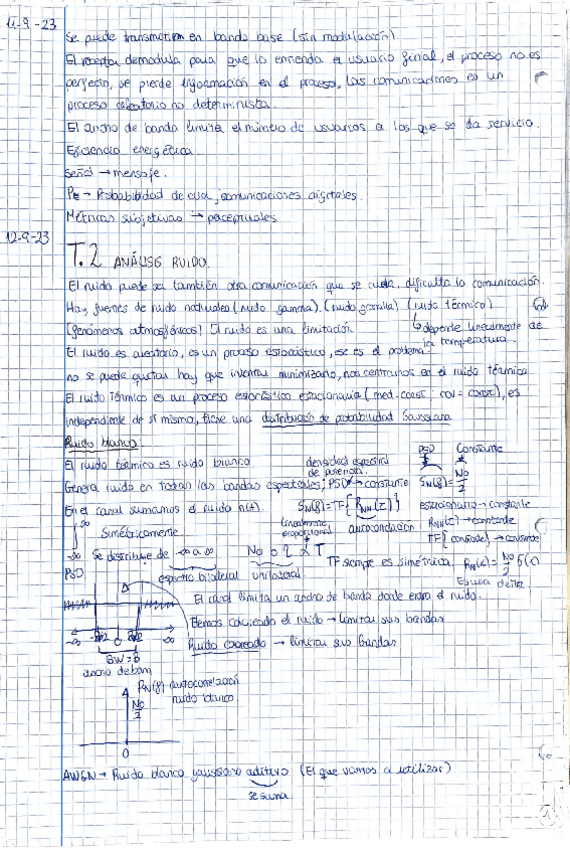 11-9-23
Se puede transmitir en banda base (sin modulación)
El receptor demodula para que lo entienda el usuario final, el proceso no es
perfecto, se pierde información en el proceso, las comunicaciones es un
proceso aleatorio no determinista.
El ancho de banda limita el número de usuarios a los que se da servicio.
Eficiencia energética
Señal → mensaje.
PE → Probabilidad de error, comunicaciones digitales.
Métricas subjetivas → perceptuales
12-9-23
T.2 ANÁLISIS RUIDO.
El ruido puede ser también otra comunicación que se cuela, dificulta la comunicación.
Hay fuentes de ruido naturales (ruido gamma), (ruido térmico)
(fenómenos atmosféricos) El ruido es una limitación.
↳ depende linealmente de
la temperatura.
El ruido es aleatorio, es un proceso estocástico, ese es el problema.
no se puede quitar hay que intentar minimizarlo, nos centramos en el ruido térmico
El ruido térmico es un proceso estocástico estacionario (med. const, cov = const), es
independiente de sí mismo, tiene una distribución de probabilidad Gaussiana
Ruido blanco:
El ruido térmico es ruido blanco
densidad espectral
de potencia.
PSD Constante
Genera ruido en todas las bandas espectrales; PSD → constante SN(f) = No/2
En el canal sumamos el ruido n(t). SN(f) = TF{RNN(τ)} estacionario → constante
linealmente
proporcional
autocorrelación
RNN(τ) → constante
TF[constante] → constante
Simétricamente
Se distribuye de -∞ a ∞ No α T
TF siempre es simétrica.
PSD
espectro bilateral unilateral
El canal limita un ancho de banda donde entra el ruido.
Hemos coloreado el ruido → limitar sus bandas
Ruido coloreado → limitar sus bandas
-B/2 0 B/2
BW = B
ancho de banda
RN(f) autocorrelación
ruido blanco.
No/2
0
AWGN → Ruido blanco gaussiano aditivo (El que vamos a utilizar)
se suma.